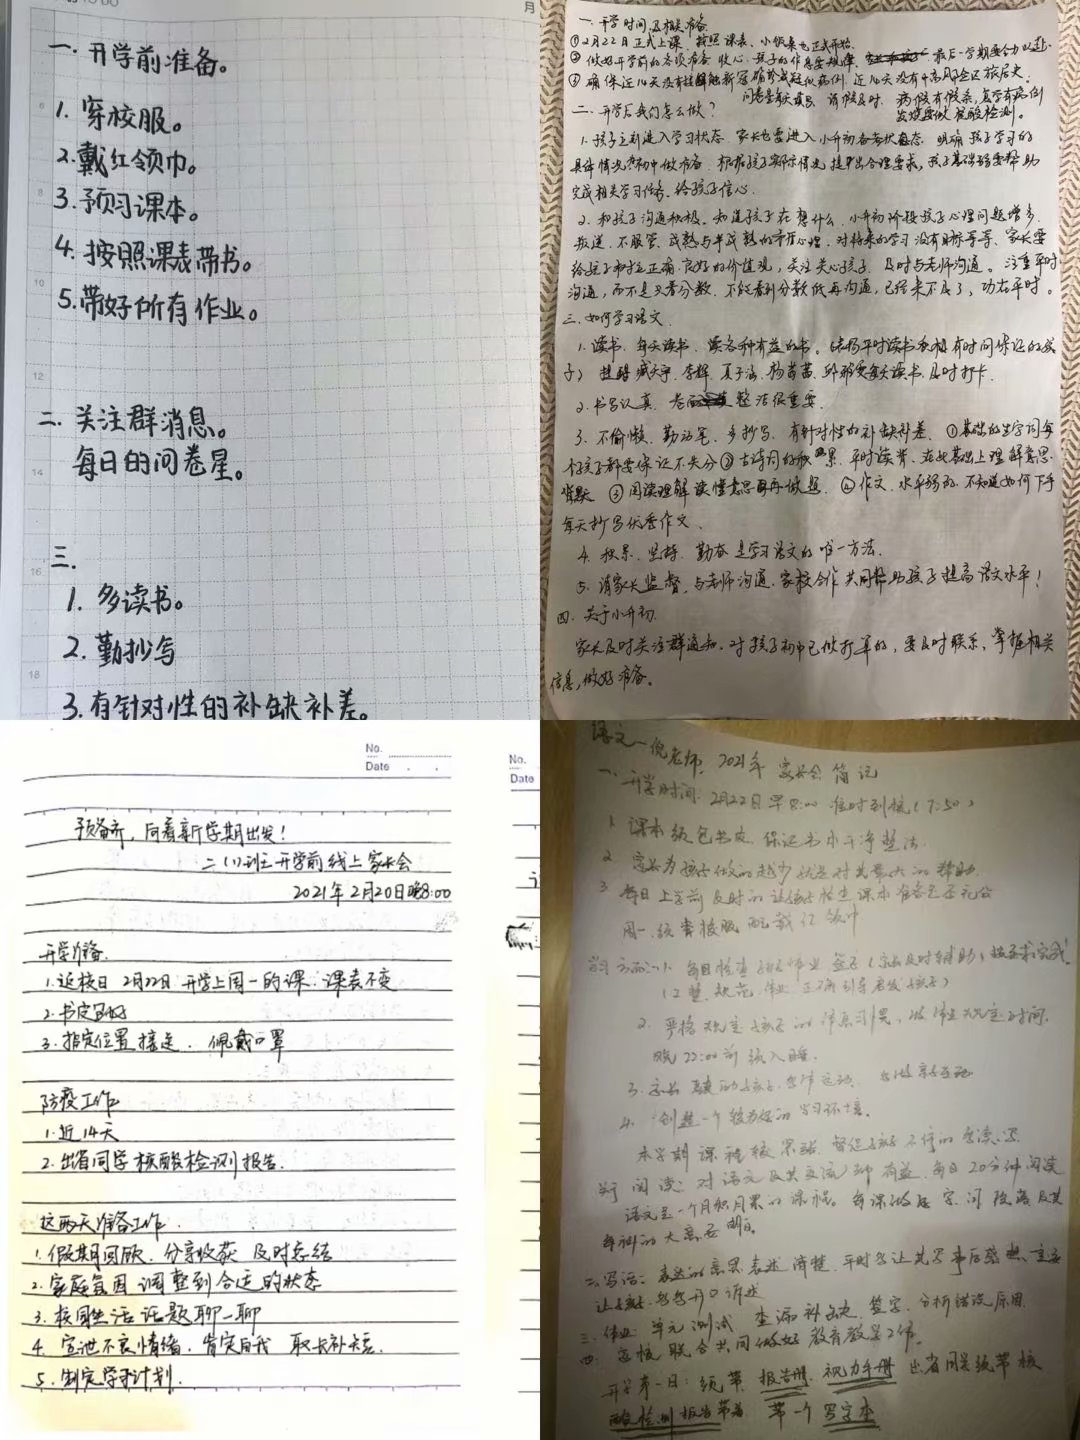 月
一. 开学前准备。
1. 穿校服。
2. 戴红领巾。
3. 预习课本。
4. 按照课表带书。
5. 带好所有作业。
二. 关注群消息。
每日的问卷星。
三.
1. 多读书。
2. 勤抄写
3. 有针对性的补缺补差。
一. 开学时间及相关准备
①2月22日正式上课 按照课表、小饭桌也正式开始.
②做好开学前的各项准备 收心. 孩子的作息要规律 最后一学期要全力以赴.
③确保近14天没有接触新冠确诊或疑似病例. 近14天没有中高风险区旅居史.
问卷星每天填写. 请假及时. 病假有假条, 复学有病例
发烧要做核酸检测。
二. 开学后我们怎么做?
1. 孩子立刻进入学习状态. 家长也要进入小升初备考状态. 明确孩子学习的
具体情况为初中做准备. 根据孩子实际情况, 提出合理要求, 孩子基础弱要帮助
完成相关学习任务. 给孩子信心.
2. 和孩子沟通积极. 知道孩子在想什么. 小升初阶段孩子心理问题增多.
叛逆. 不服管. 成熟与半成熟的矛盾心理. 对将来的学习没有目标等等. 家长要
给孩子树立正确. 良好的价值观, 关注关心孩子. 及时与老师沟通。注重平时
沟通, 而不是只看分数. 不能看到分数低再沟通, 已经来不及了, 功在平时。
三. 如何学习语文.
1. 读书. 每天读书. 读各种有益的书。
每天读书. 及时打卡.
2. 书写认真. 卷面整洁很重要.
3. 不偷懒. 勤动笔. 多抄写. 有针对性的补缺补差. ①基础的生字词每
个孩子都要保证不失分②古诗词的积累. 平时读背. 在此基础上理解意思.
③阅读理解 读懂意思再做题. ④作文. 水平弱的. 不知道如何下手
每天抄写优秀作文.
4. 积累. 坚持. 勤奋是学习语文的唯一方法.
5. 请家长监督, 与老师沟通. 家校合作 共同帮助孩子提高语文水平!
四. 关于小升初.
家长及时关注群通知. 对孩子初中已做打算的, 要及时联系, 掌握相关
信息, 做好准备。
No.
Date
预备齐, 向着新学期出发!
二(1)班开学前线上家长会
2021年2月20日晚8:00
开学准备
1. 返校日 2月22日 开学上周一的课. 课表不变
2. 书皮包好
3. 指定位置接送. 佩戴口罩
防疫工作
1. 近14天
2. 出省同学核酸检测报告.
这两天准备工作.
1. 假期回顾. 分享收获 及时总结
2. 家庭氛围 调整到合适的状态
3. 校园生活话题聊一聊
4. 宣泄不良情绪. 肯定自我 取长补短.
5. 制定学习计划.
No.
Date
语文—倪老师. 2021年 家长会 简记
一. 开学时间: 2月22日 早8:00 准时到校(7:50)
1 课本须包书皮. 保证书本干净整洁.
2. 家长为孩子做的越少就是对其最大的帮助.
3 每日上学前 及时的让孩子检查课本准备是否充分
周一. 须穿校服 配戴红领巾
学习方面: 1. 每日检查 作业 签字(家长及时辅助)按要求完成!
2. 严格规定孩子的作息习惯.
晚22:00前须入睡.
3. 家长 多做运动. 多做亲子互动
4. 创造一个较为好的学习环境.
本学期课程较紧张 督促孩子不停的多读写
阅读: 对语文及其交流都有益. 每日20分钟阅读
语文是一个月积月累的课程. 每课做好字. 词 段落及其
大意要明白.
二. 写话: 表达的意思表述清楚. 平时多让其写事后感想.
让孩子多多开口诉述
三. 作业: 单元测试 查漏补缺. 签字. 分析错误原因
四. 家校联合共同做好教育教学工作.
开学第一日: 须带 报告册. 视力手册 出省同学须带核
酸检测报告 带一个写字本